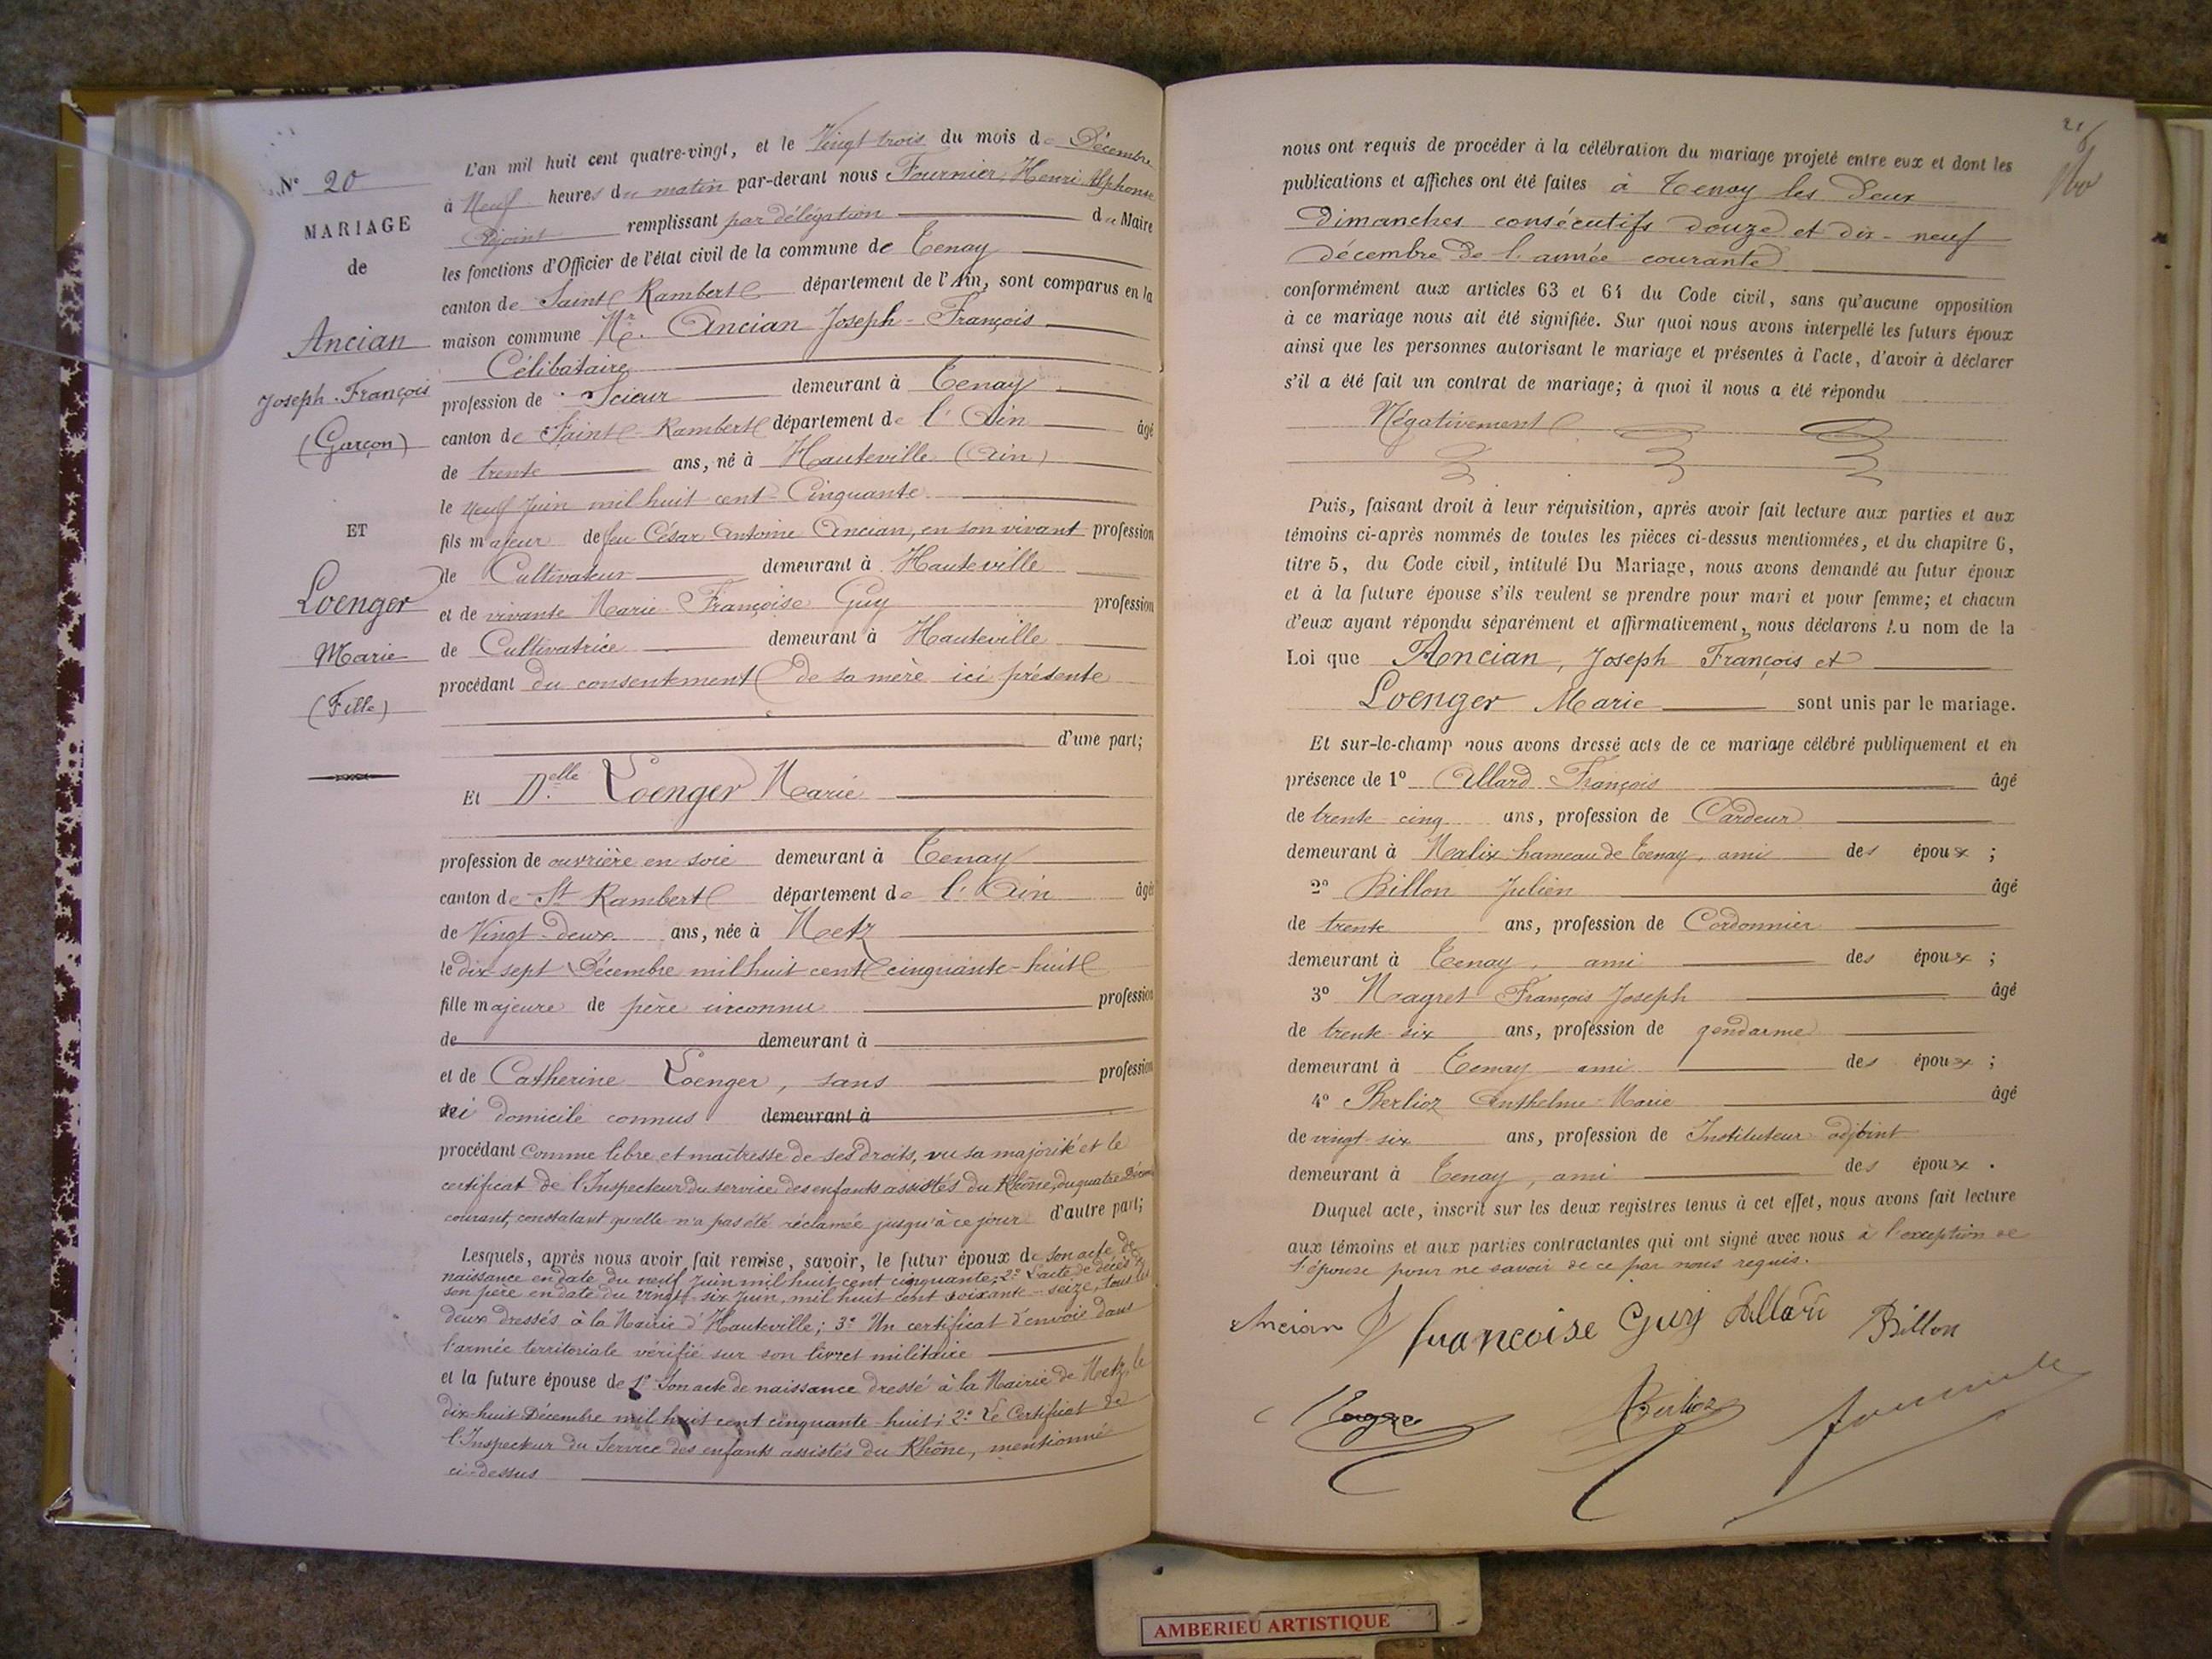 N° 20
MARIAGE
de
Ancian
Joseph-François
(Garçon)
ET
Loenger
Marie
(Fille)
L'an mil huit cent quatre-vingt, et le Vingt trois du mois de Décembre
à Neuf heures du matin par-devant nous Fournier, Henri Alphonse
Adjoint remplissant par délégation du Maire
les fonctions d'Officier de l'état civil de la commune de Tenay
canton de Saint Rambert département de l'Ain, sont comparus en la
maison commune Mr. Ancian Joseph-François
Célibataire
profession de Scieur demeurant à Tenay
canton de Saint-Rambert département de l'Ain âgé
de trente ans, né à Hauteville (Ain)
le neuf Juin mil huit cent Cinquante
fils majeur de feu César Antoine Ancian, en son vivant profession
de Cultivateur demeurant à Hauteville
et de vivante Marie Françoise Guy profession
de Cultivatrice demeurant à Hauteville
procédant du consentement de sa mère ici présente
d'une part;
Et Delle Loenger Marie
profession de ouvrière en soie demeurant à Tenay
canton de St Rambert département de l'Ain âgé
de Vingt-deux ans, née à Metz
le dix sept Décembre mil huit cent cinquante-huit
fille majeure de père inconnu profession
de demeurant à
et de Catherine Loenger, sans profession
ni domicile connus demeurant à
procédant comme libre et maîtresse de ses droits, vu sa majorité et le
certificat de l'Inspecteur du service des enfants assistés du Rhône, du quatre Décembre
courant, constatant qu'elle n'a pas été réclamée jusqu'à ce jour d'autre part;
Lesquels, après nous avoir fait remise, savoir, le futur époux de son acte de
naissance en date du neuf Juin mil huit cent cinquante; 2° L'acte de décès de
son père en date du vingt-six Juin, mil huit cent soixante-seize, tous les
deux dressés à la Mairie d'Hauteville; 3° Un certificat d'envoi dans
l'armée territoriale vérifié sur son livret militaire
et la future épouse de 1° Son acte de naissance dressé à la Mairie de Metz, le
dix-huit Décembre mil huit cent cinquante-huit; 2° Le Certificat de
l'Inspecteur du Service des enfants assistés du Rhône, mentionné
ci-dessus
nous ont requis de procéder à la célébration du mariage projeté entre eux et dont les
publications et affiches ont été faites à Tenay les Deux
Dimanches consécutifs douze et dix-neuf
décembre de l'année courante
conformément aux articles 63 et 64 du Code civil, sans qu'aucune opposition
à ce mariage nous ait été signifiée. Sur quoi nous avons interpellé les futurs époux
ainsi que les personnes autorisant le mariage et présentes à l'acte, d'avoir à déclarer
s'il a été fait un contrat de mariage; à quoi il nous a été répondu
Négativement
Puis, faisant droit à leur réquisition, après avoir fait lecture aux parties et aux
témoins ci-après nommés de toutes les pièces ci-dessus mentionnées, et du chapitre 6,
titre 5, du Code civil, intitulé Du Mariage, nous avons demandé au futur époux
et à la future épouse s'ils veulent se prendre pour mari et pour femme; et chacun
d'eux ayant répondu séparément et affirmativement, nous déclarons Au nom de la
Loi que Ancian, Joseph François et
Loenger Marie sont unis par le mariage.
Et sur-le-champ nous avons dressé acte de ce mariage célébré publiquement et en
présence de 1° Allard François âgé
de trente-cinq ans, profession de Cardeur
demeurant à Malix hameau de Tenay, ami des époux;
2° Billon Julien âgé
de trente ans, profession de Cordonnier
demeurant à Tenay, ami des époux;
3° Magret François Joseph âgé
de trente six ans, profession de gendarme
demeurant à Tenay ami des époux;
4° Berlioz Anthelme-Marie âgé
de vingt-six ans, profession de Instituteur adjoint
demeurant à Tenay, ami des époux.
Duquel acte, inscrit sur les deux registres tenus à cet effet, nous avons fait lecture
aux témoins et aux parties contractantes qui ont signé avec nous à l'exception de
l'épouse pour ne savoir de ce par nous requis.
Ancian J françoise Guy Allard Billon
Berlioz
AMBERIEU ARTISTIQUE